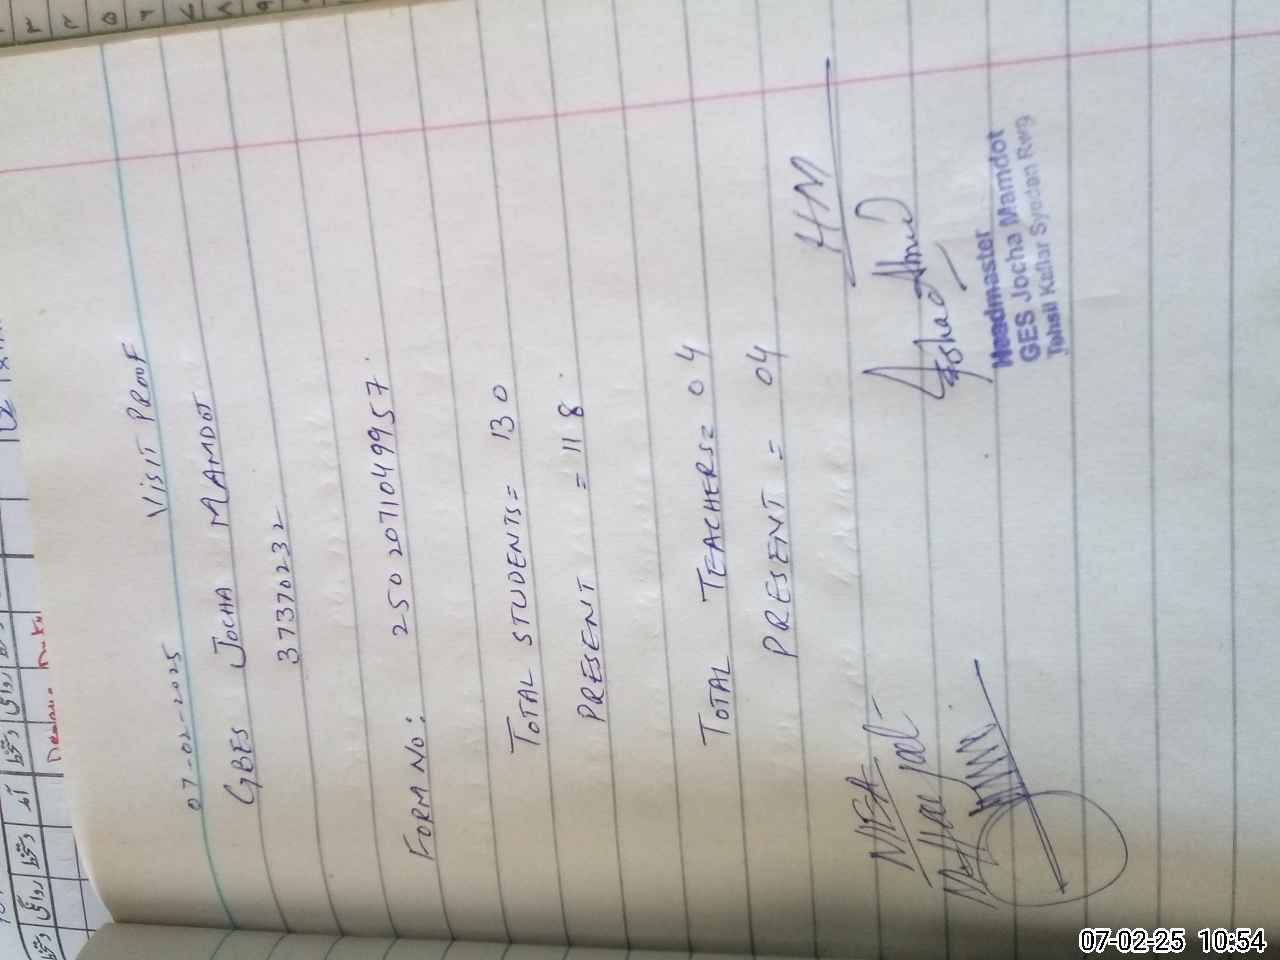 VISIT PROOF
07-02-2025
GBES JOCHA MAMDOT
37370232
FORM NO: 250207104995 7
TOTAL STUDENTS= 130
PRESENT = 118
TOTAL TEACHERS= 04
PRESENT = 04
HM
MEA
Headmaster
GES Jocha Mamdot
Tehsil Kallar Syedan Rwp
07-02-25 10:54